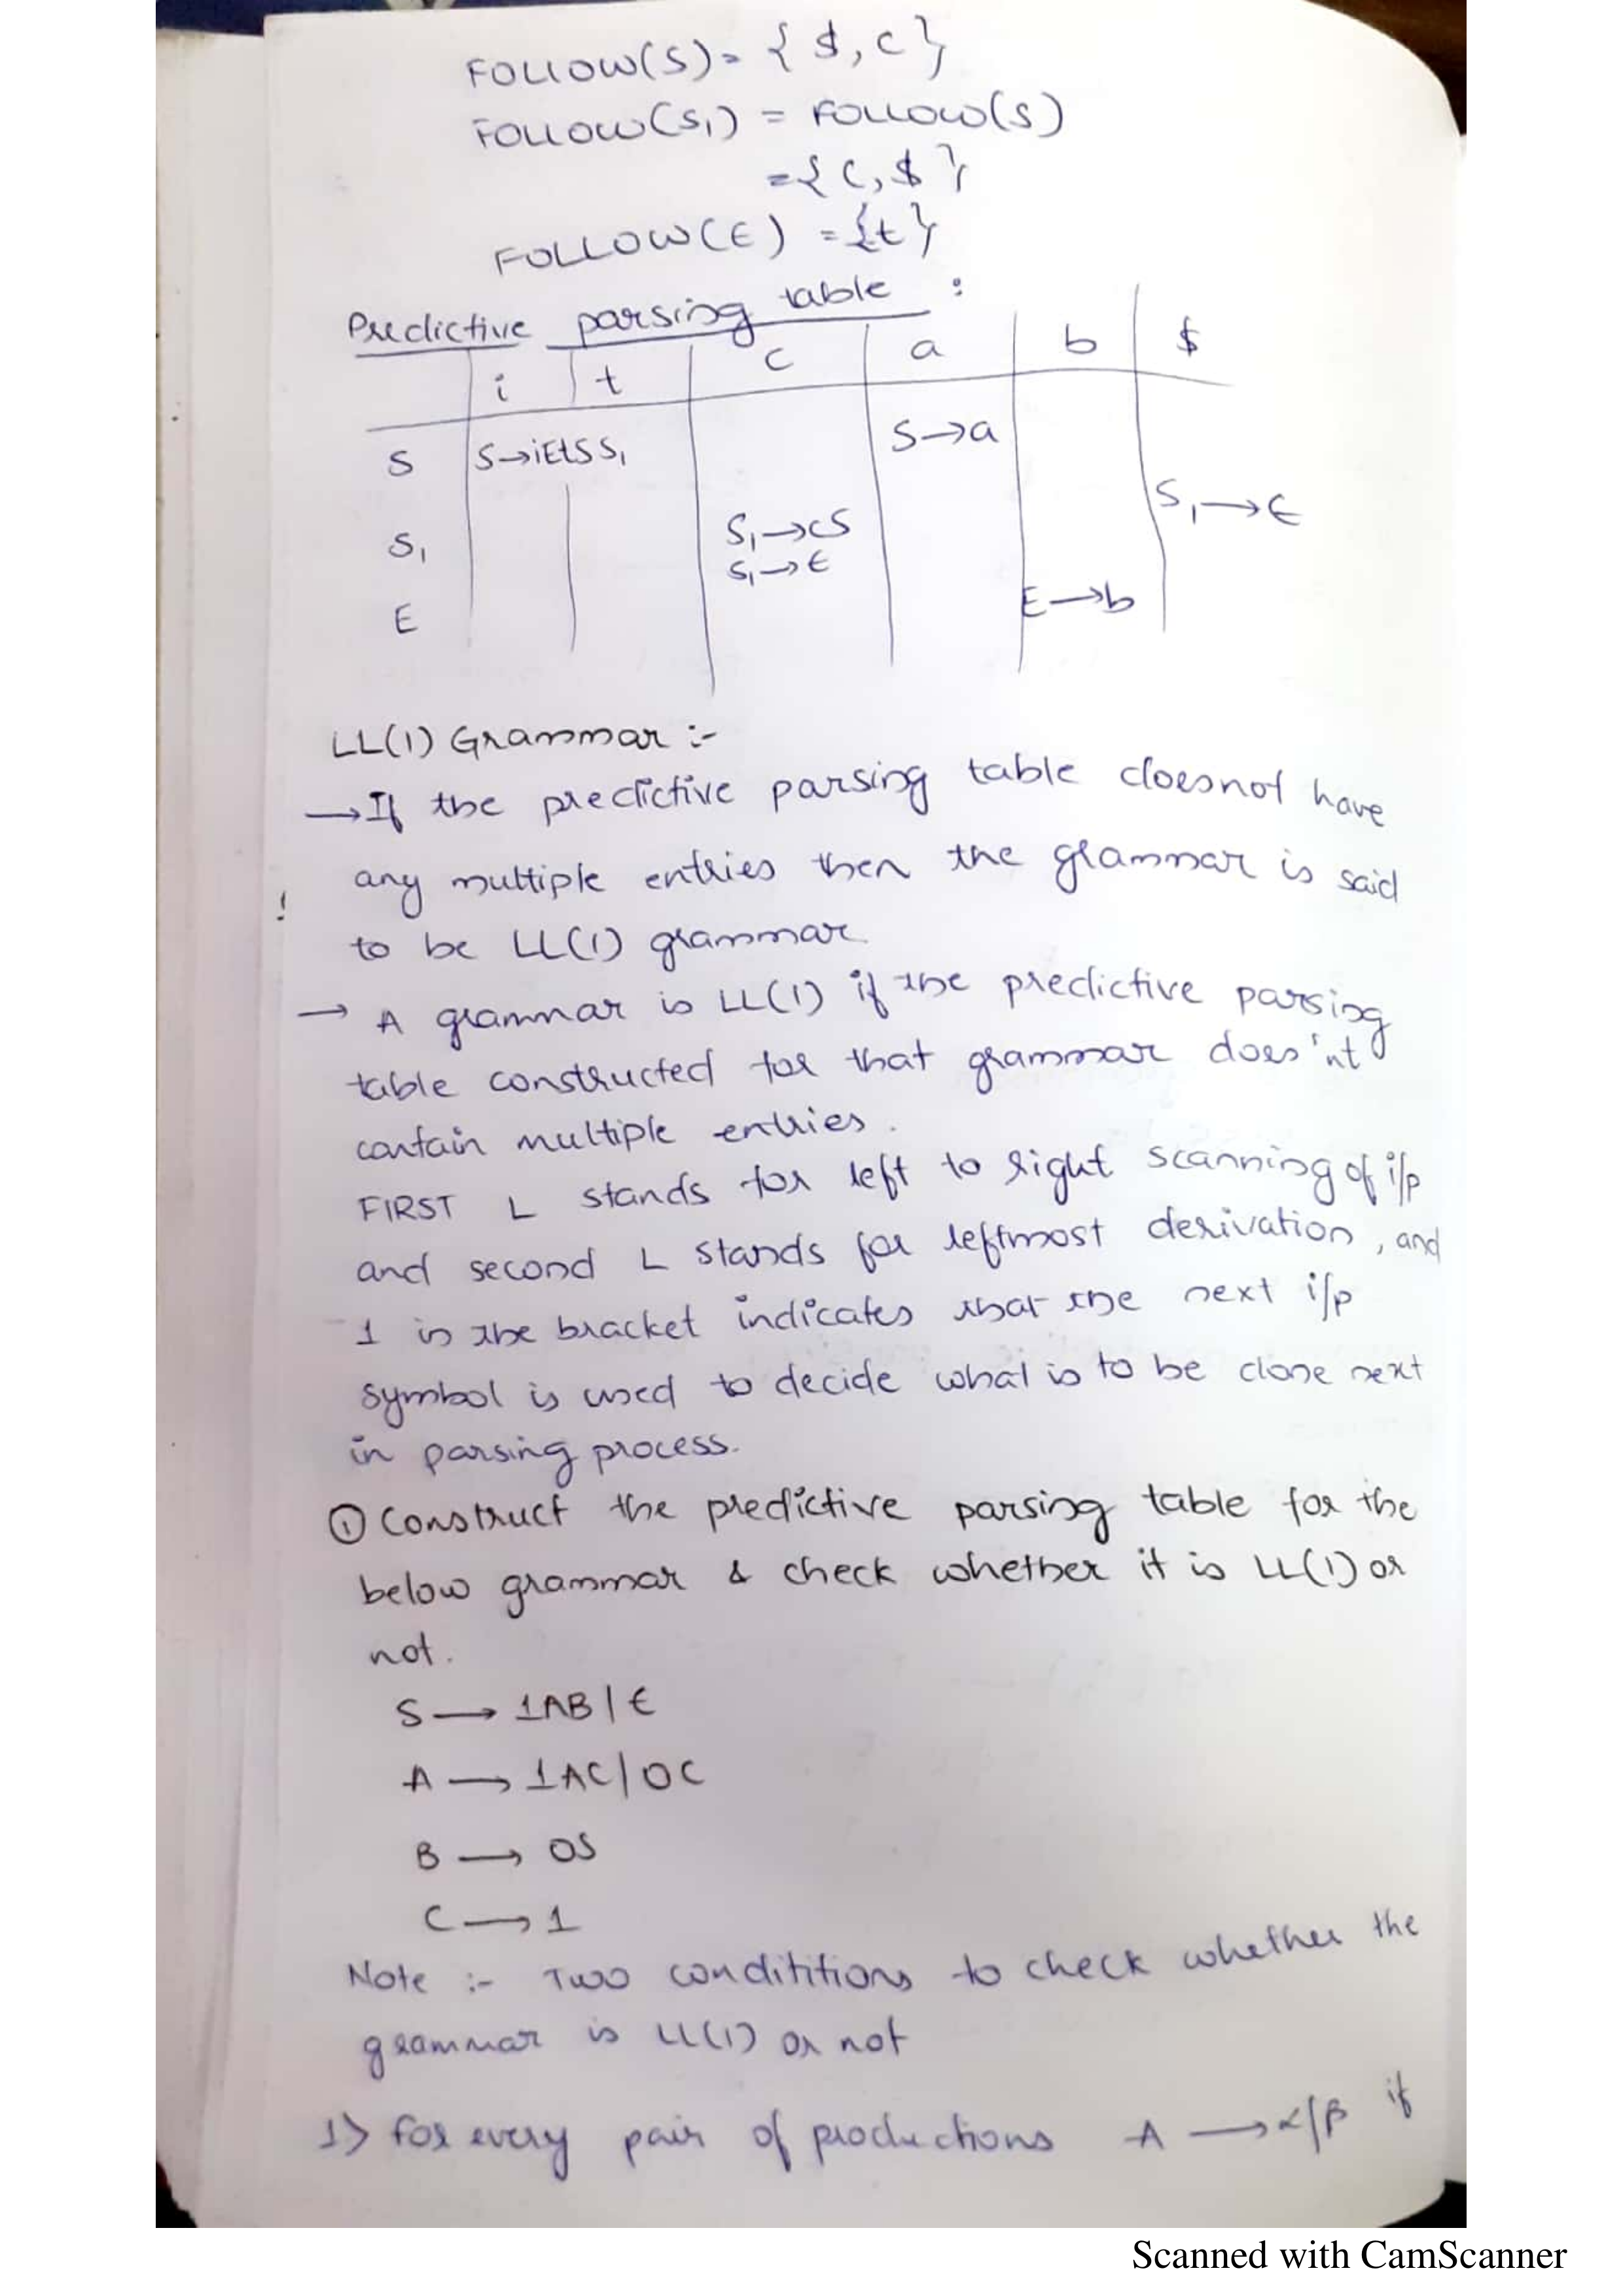 FOLLOW(S) = { $, c }
FOLLOW(S₁) = FOLLOW(S)
= { c, $ }
FOLLOW(E) = { t }
Predictive parsing table :
i | t | c | a | b | $
S S→iEtSS₁ S→a
S₁ S₁→cS S₁→ϵ
S₁→ϵ
E E→b
LL(1) Grammar :-
→ If the predictive parsing table doesnot have
any multiple entries then the grammar is said
to be LL(1) grammar.
→ A grammar is LL(1) if the predictive parsing
table constructed for that grammar does'nt
contain multiple entries.
FIRST L stands for left to right scanning of i/p
and second L stands for leftmost derivation, and
1 in the bracket indicates that the next i/p
symbol is used to decide what is to be done next
in parsing process.
① Construct the predictive parsing table for the
below grammar & check whether it is LL(1) or
not.
S → 1AB | ϵ
A → 1AC | 0C
B → 0S
C → 1
Note :- Two condititions to check whether the
grammar is LL(1) or not
1> for every pair of productions A → α/β if
Scanned with CamScanner